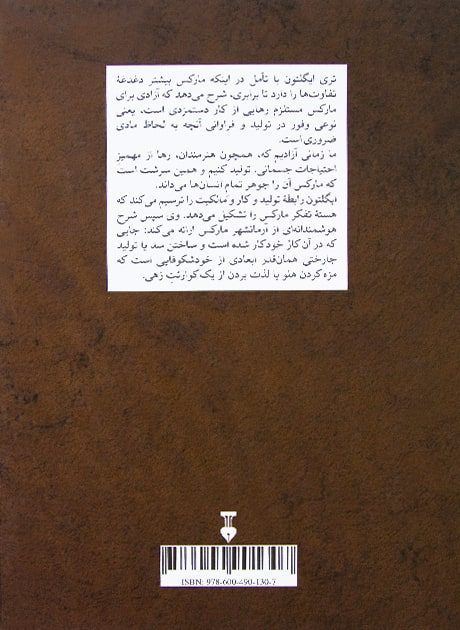 تری ایگلتون با تأمل در اینکه مارکس بیشتر دغدغهٔ
تفاوت‌ها را دارد تا برابری، شرح می‌دهد که آزادی برای
مارکس مستلزم رهایی از کار دستمزدی است، یعنی
نوعی وفور در تولید و فراوانی آنچه به لحاظ مادی
ضروری است.
ما زمانی آزادیم که، همچون هنرمندان، رها از مهمیز
احتیاجات جسمانی، تولید کنیم و همین سرشت است
که مارکس آن را جوهر تمام انسان‌ها می‌داند.
ایگلتون رابطهٔ تولید و کار و مالکیت را ترسیم می‌کند که
هستهٔ تفکر مارکس را تشکیل می‌دهد. وی سپس شرح
هوشمندانه‌ای از آرمانشهر مارکس ارائه می‌کند: جایی
که در آن کار خودکار شده است و ساختن سد یا تولید
جارختی همان‌قدر ابعادی از خودشکوفایی است که
مزه‌کردن هلو یا لذت بردن از یک کوارتت زهی.
ISBN: 978-600-490-130-7